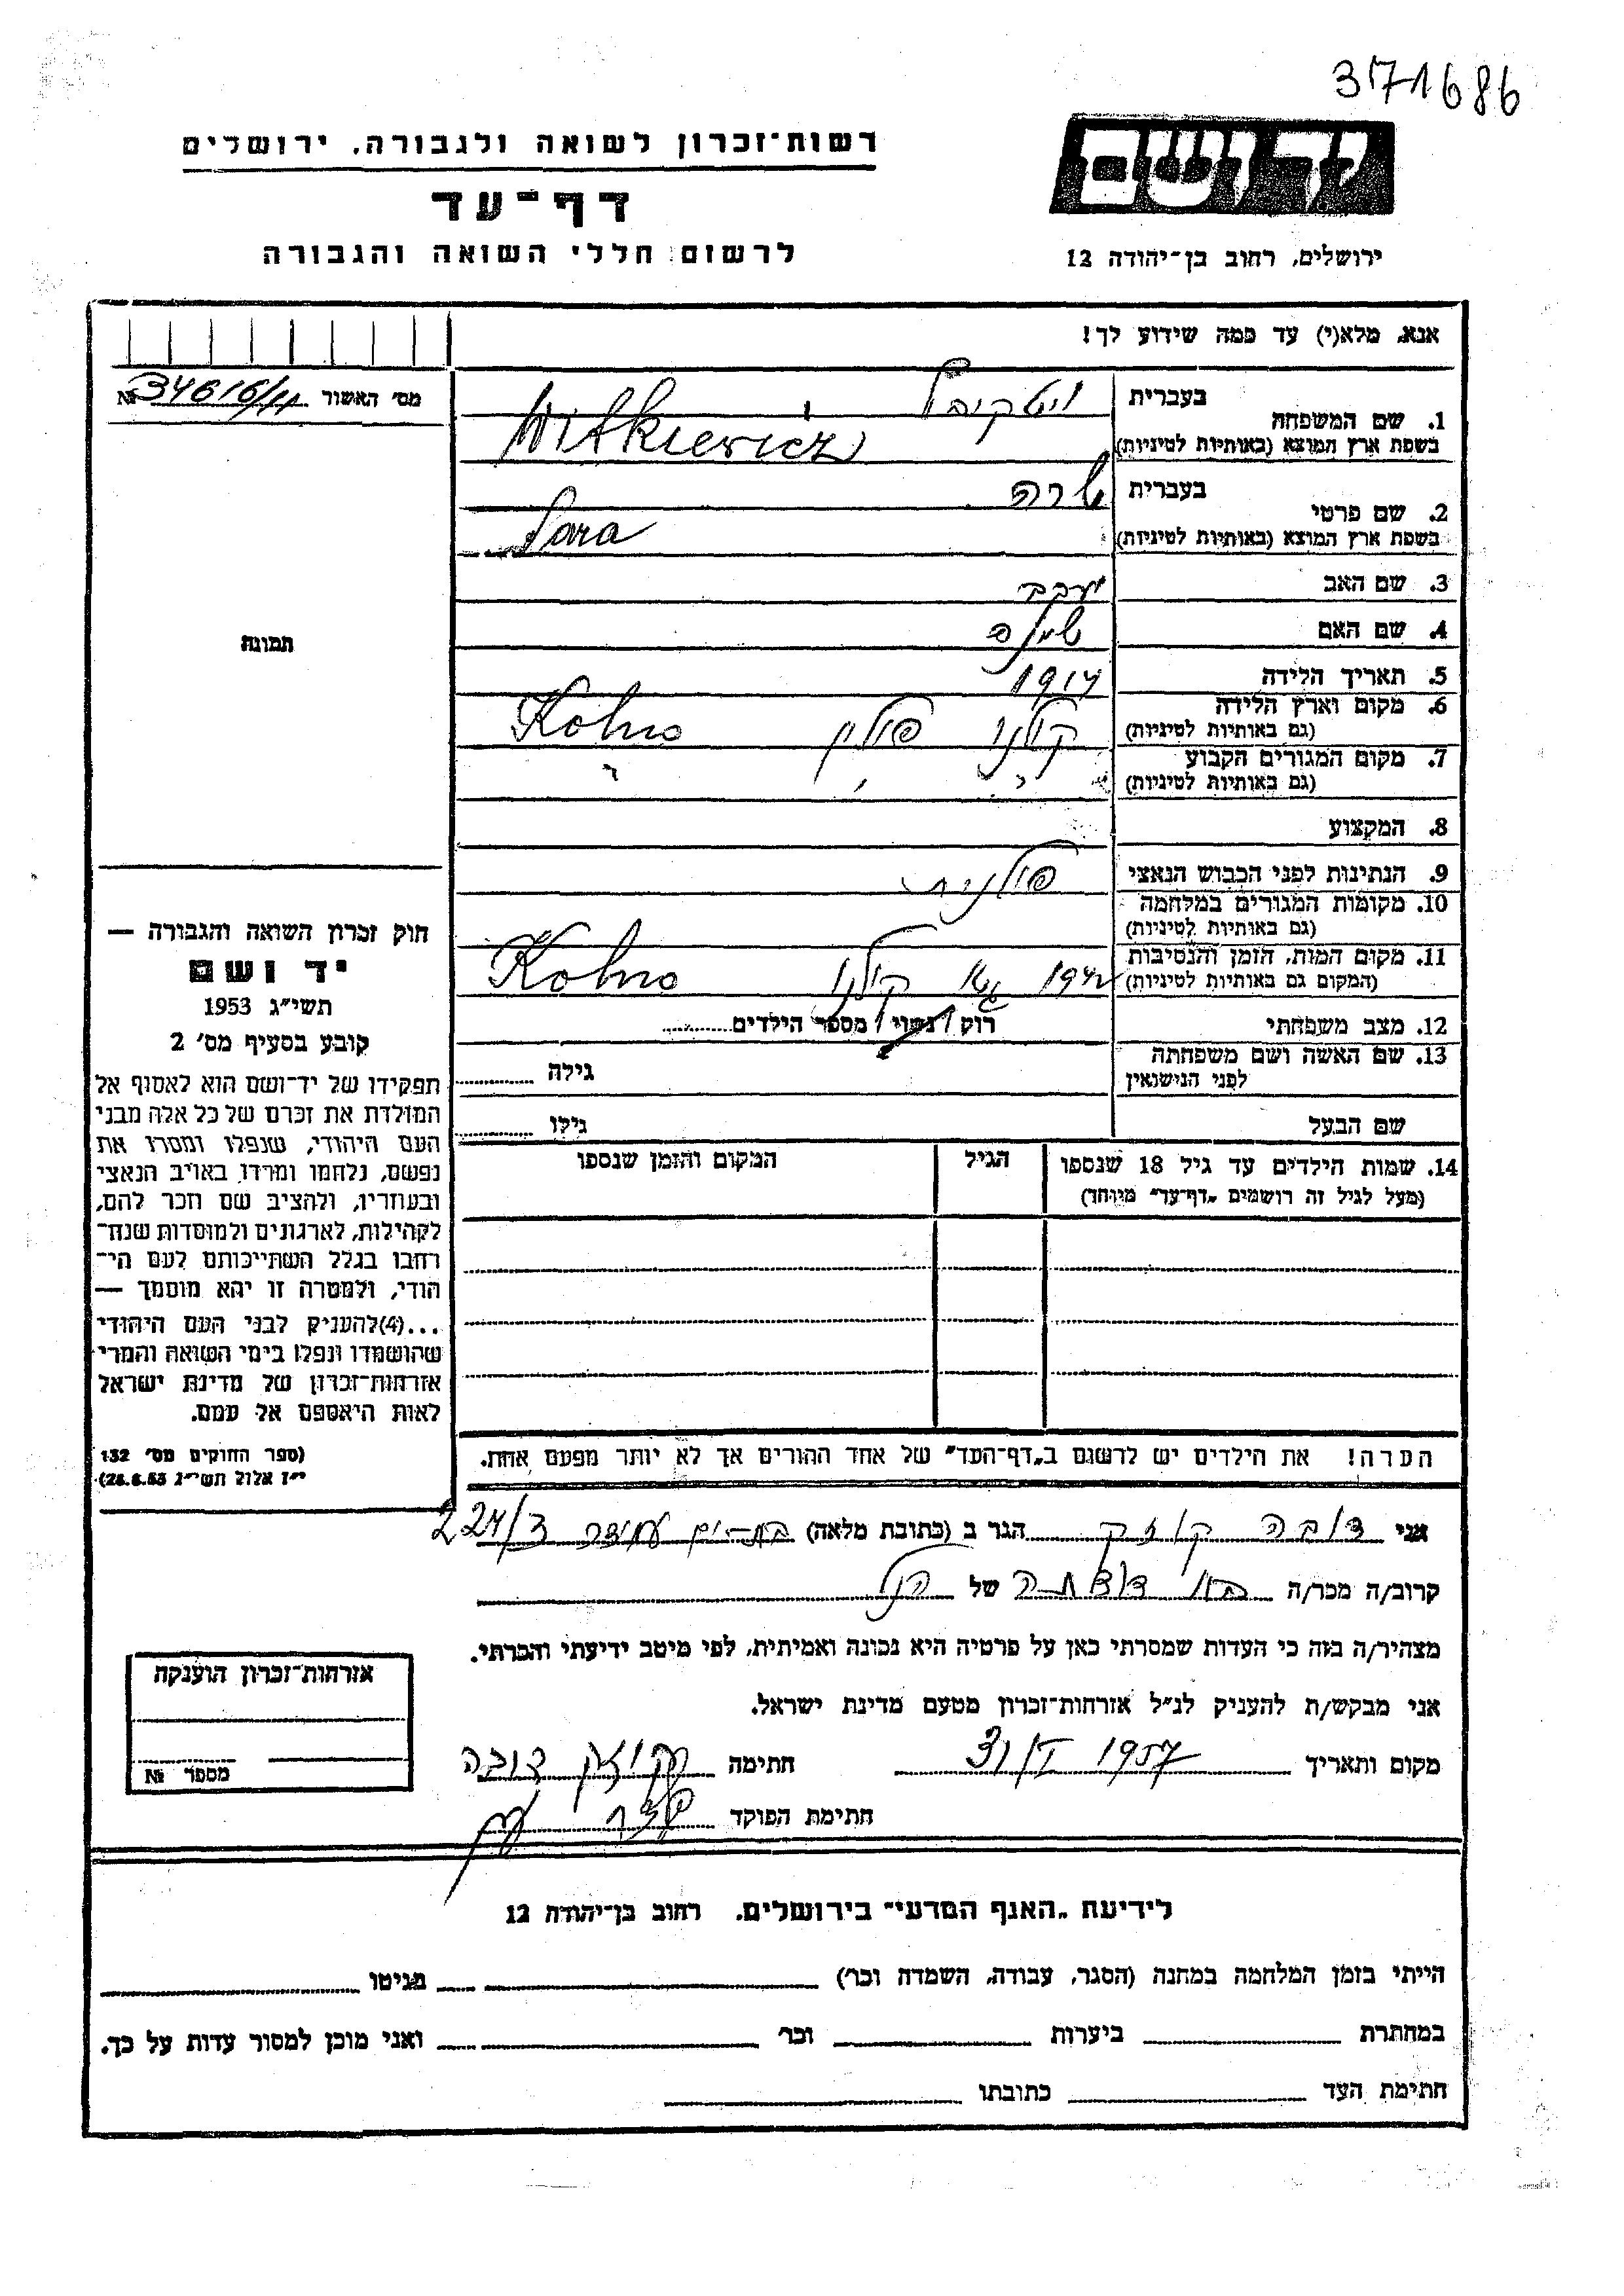 371686
יד ושם
ירושלים, רחוב בן־יהודה 12
רשות־זכרון לשואה ולגבורה, ירושלים
דף־עד
לרשום חללי השואה והגבורה
אנא, מלא(י) עד כמה שידוע לך!
מס' האשור № 34616/11
1. שם המשפחה
בעברית
בשפת ארץ המוצא (באותיות לטיניות) Witkiewicz
2. שם פרטי
בעברית שרה
בשפת ארץ המוצא (באותיות לטיניות) Sara
3. שם האב יעקב
4. שם האם
5. תאריך הלידה 1917
6. מקום וארץ הלידה קולנו פולין Kolno
(גם באותיות לטיניות)
7. מקום המגורים הקבוע
(גם באותיות לטיניות)
8. המקצוע
9. הנתינות לפני הכבוש הנאצי פולנית
10. מקומות המגורים במלחמה
(גם באותיות לטיניות)
11. מקום המות, הזמן והנסיבות גטו קולנו Kolno
(המקום גם באותיות לטיניות)
12. מצב משפחתי רוק / נשוי / מספר הילדים
13. שם האשה ושם משפחתה גילה
לפני הנישואין
שם הבעל גילו
14. שמות הילדים עד גיל 18 שנספו הגיל המקום והזמן שנספו
(מעל לגיל זה רושמים "דף־עד" מיוחד)
הערה! את הילדים יש לרשום ב"דף־העד" של אחד ההורים אך לא יותר מפעם אחת.
תמונה
חוק זכרון השואה והגבורה —
יד ושם
תשי"ג 1953
קובע בסעיף מס' 2
תפקידו של יד־ושם הוא לאסוף אל
המולדת את זכרם של כל אלה מבני
העם היהודי, שנפלו ומסרו את
נפשם, נלחמו ומרדו באויב הנאצי
ובעוזריו, ולהציב שם וזכר להם,
לקהילות, לארגונים ולמוסדות שנח־
רבו בגלל השתייכותם לעם הי־
הודי, ולמטרה זו יהא מוסמך —
...(4) להעניק לבני העם היהודי
שהושמדו ונפלו בימי השואה והמרי
אזרחות־זכרון של מדינת ישראל
לאות היאספם אל עמם.
(ספר החוקים מס' 132
י"ז אלול תשי"ג 28.8.53)
אני דובה קוזק הגר ב (כתובת מלאה) בת-ים
קרוב/ה מכר/ה בת דודתה של הנ"ל
מצהיר/ה בזה כי העדות שמסרתי כאן על פרטיה היא נכונה ואמיתית, לפי מיטב ידיעתי והכרתי.
אני מבקש/ת להעניק לנ"ל אזרחות־זכרון מטעם מדינת ישראל.
מקום ותאריך 1957 חתימה קוזק דובה
חתימת הפוקד
אזרחות־זכרון הוענקה
מספר №
לידיעת "האגף המדעי" בירושלים, רחוב בן־יהודה 12
הייתי בזמן המלחמה במחנה (הסגר, עבודה, השמדה וכו') בגיטו
במחתרת ביערות וכו' ואני מוכן למסור עדות על כך.
חתימת העד כתובתו